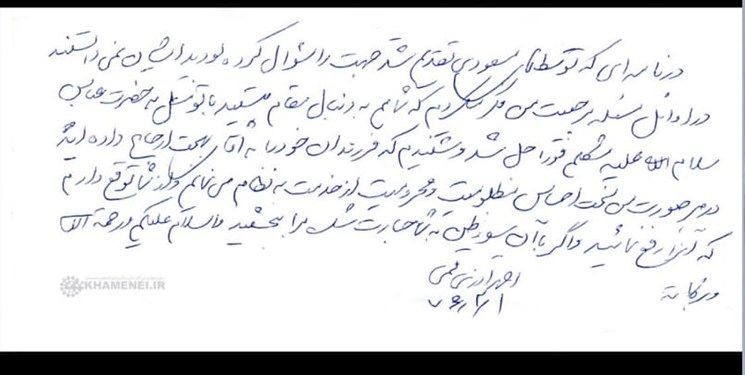 در نامه‌ای که توسط آقای مسعودی تقدیم شد جهت را سئوال کرده بودید ایشان نمی‌دانستند
در اوائل مسئله مرجعیت من فکر می‌کردم که شما هم به دنبال مقام هستید با توسل به حضرت عباس
سلام الله علیه مشکلم فوراً حل شد و شنیدم که فرزندان خود را به آقای بهجت ارجاع داده‌اید
در هر صورت من تحت احساس مظلومیت و محرومیت از خدمت به نظام می‌نمایم و از شما توقع دارم
که آنرا رفع نمائید و اگر با آن سوء ظن به شما جسارت شد مرا ببخشید والسلام علیکم و رحمة الله
و برکاته
احمد آذری قمی
۷۶٫۳٫۱
KHAMENEI.IR